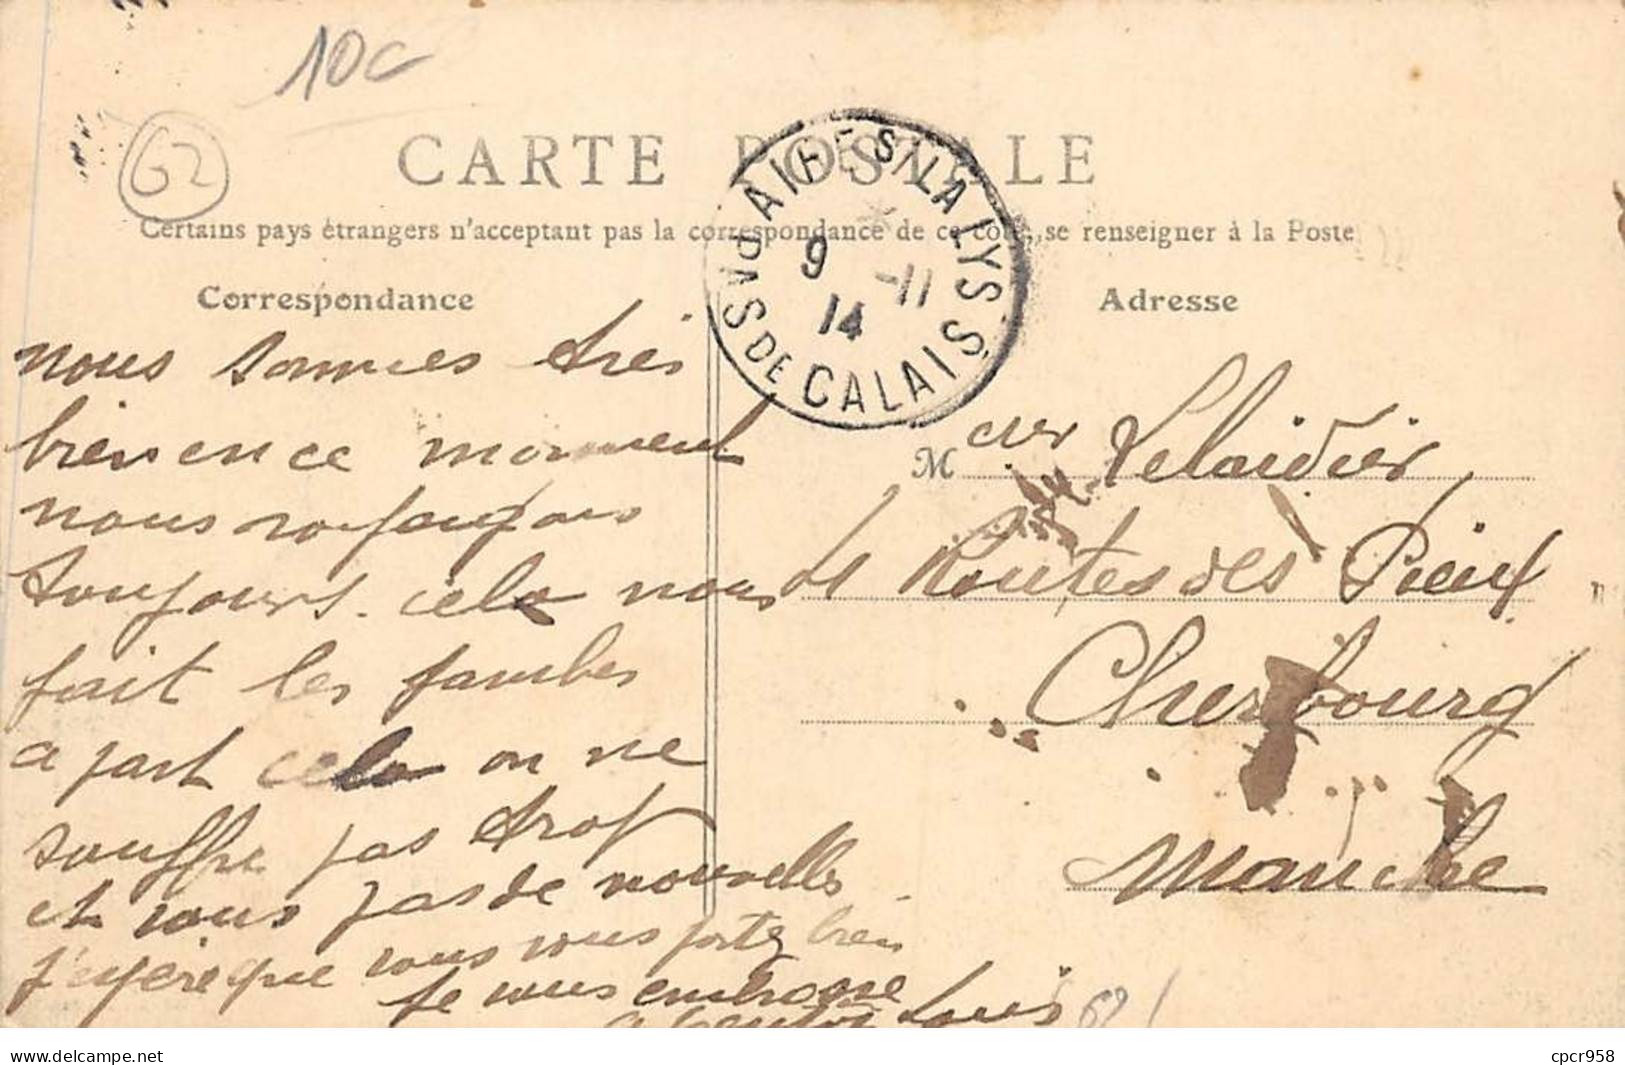 10c
62
CARTE POSTALE
Certains pays étrangers n'acceptant pas la correspondance de ce côté, se renseigner à la Poste
AIRE S/ LA LYS
9 -11
14
PAS DE CALAIS
Correspondance
Adresse
nous sommes très
bien en ce moment
nous
toujours cela nous
fait les jambes
a part cela on ne
souffre pas trop
et vous pas de nouvelles
j'espère que vous vous portez bien
je vous embrasse
a bientôt Louis
M
Lelaidier
Routes des Pieux
Cherbourg
Manche
62
delcampe.net
cpcr958